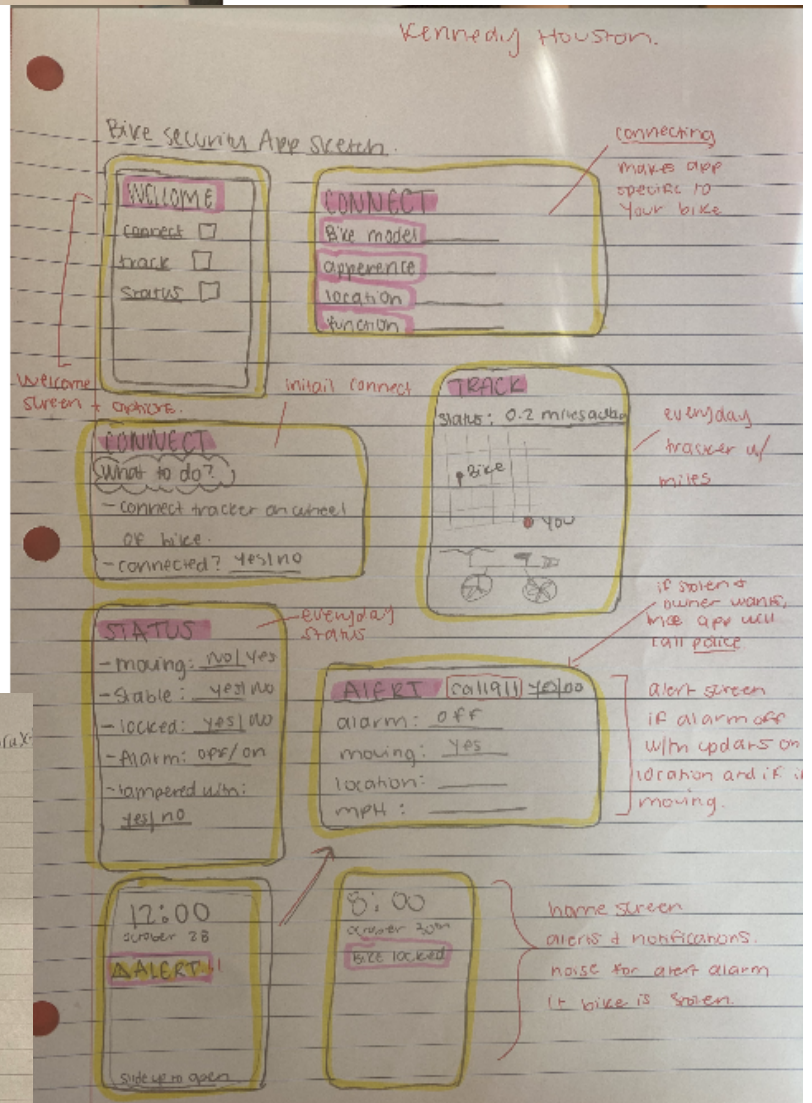 Kennedy Houston.
Bike security App Sketch.
WELCOME
connect
track
status
welcome
screen + options.
CONNECT
Bike model
apperence
location
function
connecting
makes app
specific to
your bike
CONNECT
What to do?
- connect tracker on wheel
of bike.
- connected? yes/no
initail connect
TRACK
status: 0.2 miles
Bike
YOU
everyday
tracker w/
miles
STATUS
- moving: no/yes
- Stable: yes/no
- locked: yes/no
- Alarm: off/on
- tampered with:
yes/no
everyday
status
ALERT call 911 yes/no
alarm: off
moving: yes
location:
mpH:
if stolen &
owner wants,
app will
call police
alert screen
if alarm off
with updats on
location and if
moving.
12:00
october 28
ALERT!!
slide up to open
8:00
october 30th
BIKE locked
home screen
alerts + notifications.
noise for alert alarm
if bike is stolen.